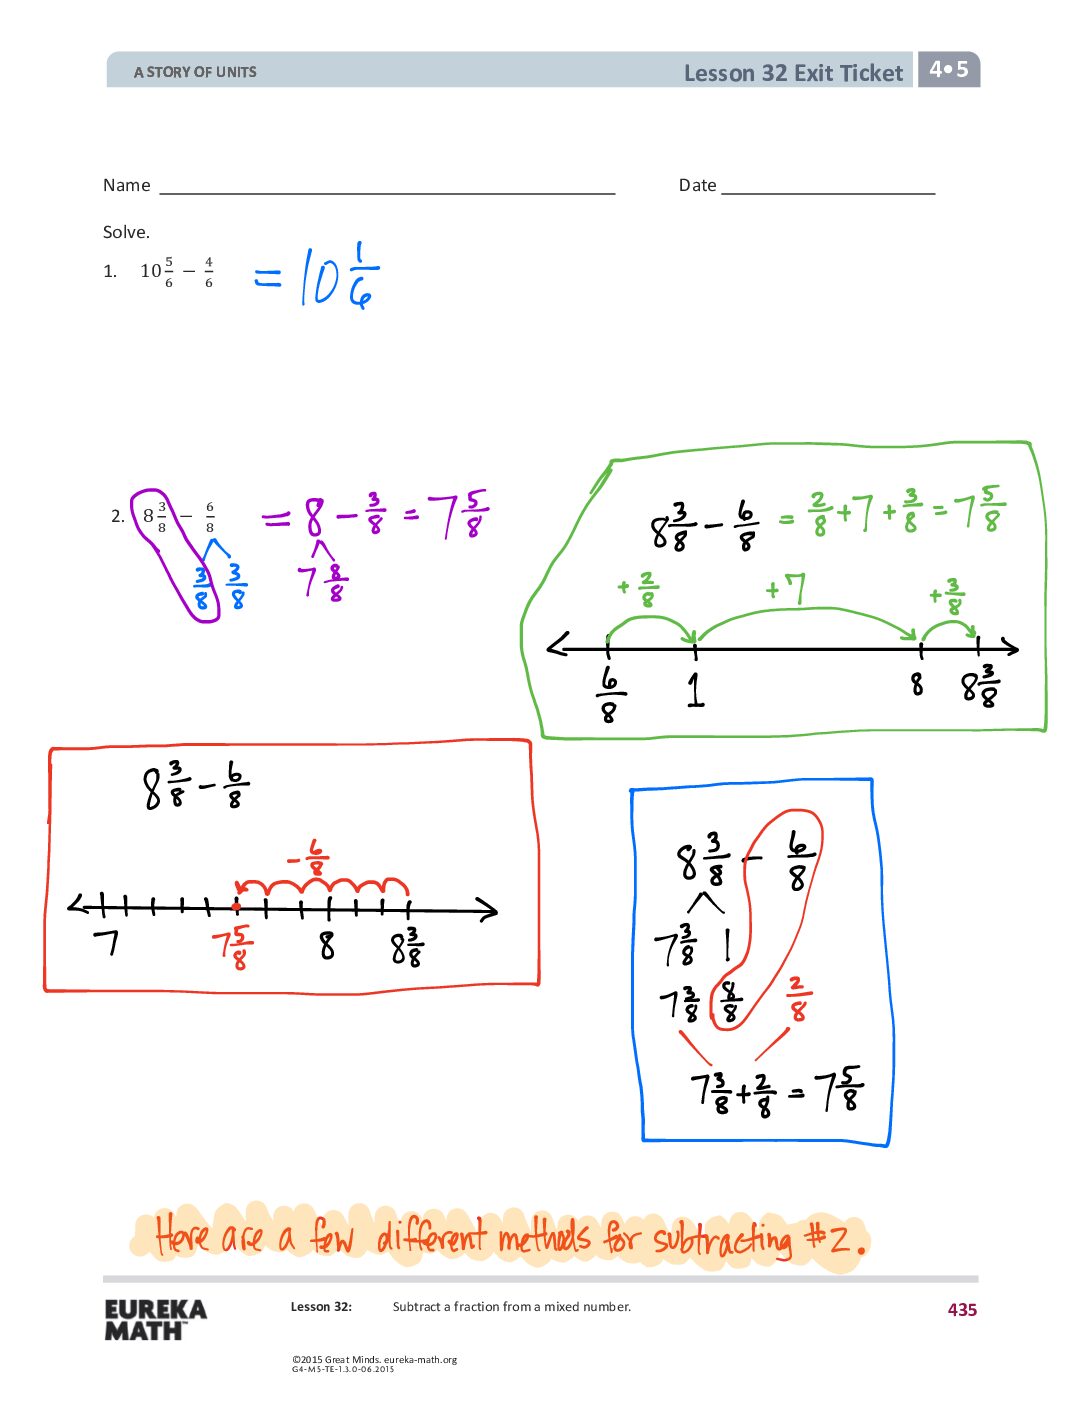 A STORY OF UNITS
Lesson 32 Exit Ticket 4•5
Name
Date
Solve.
1. 10 5/6 − 4/6 = 10 1/6
2. 8 3/8 − 6/8 = 8 − 3/8 = 7 5/8
3/8 3/8
7 8/8
8 3/8 − 6/8 = 2/8 + 7 + 3/8 = 7 5/8
+ 2/8 + 7 + 3/8
6/8 1 8 8 3/8
8 3/8 − 6/8
− 6/8
7 7 5/8 8 8 3/8
8 3/8 − 6/8
7 3/8 1
7 3/8 8/8 2/8
7 3/8 + 2/8 = 7 5/8
Here are a few different methods for subtracting #2.
EUREKA MATH™
Lesson 32: Subtract a fraction from a mixed number.
435
©2015 Great Minds. eureka-math.org
G4-M5-TE-1.3.0-06.2015